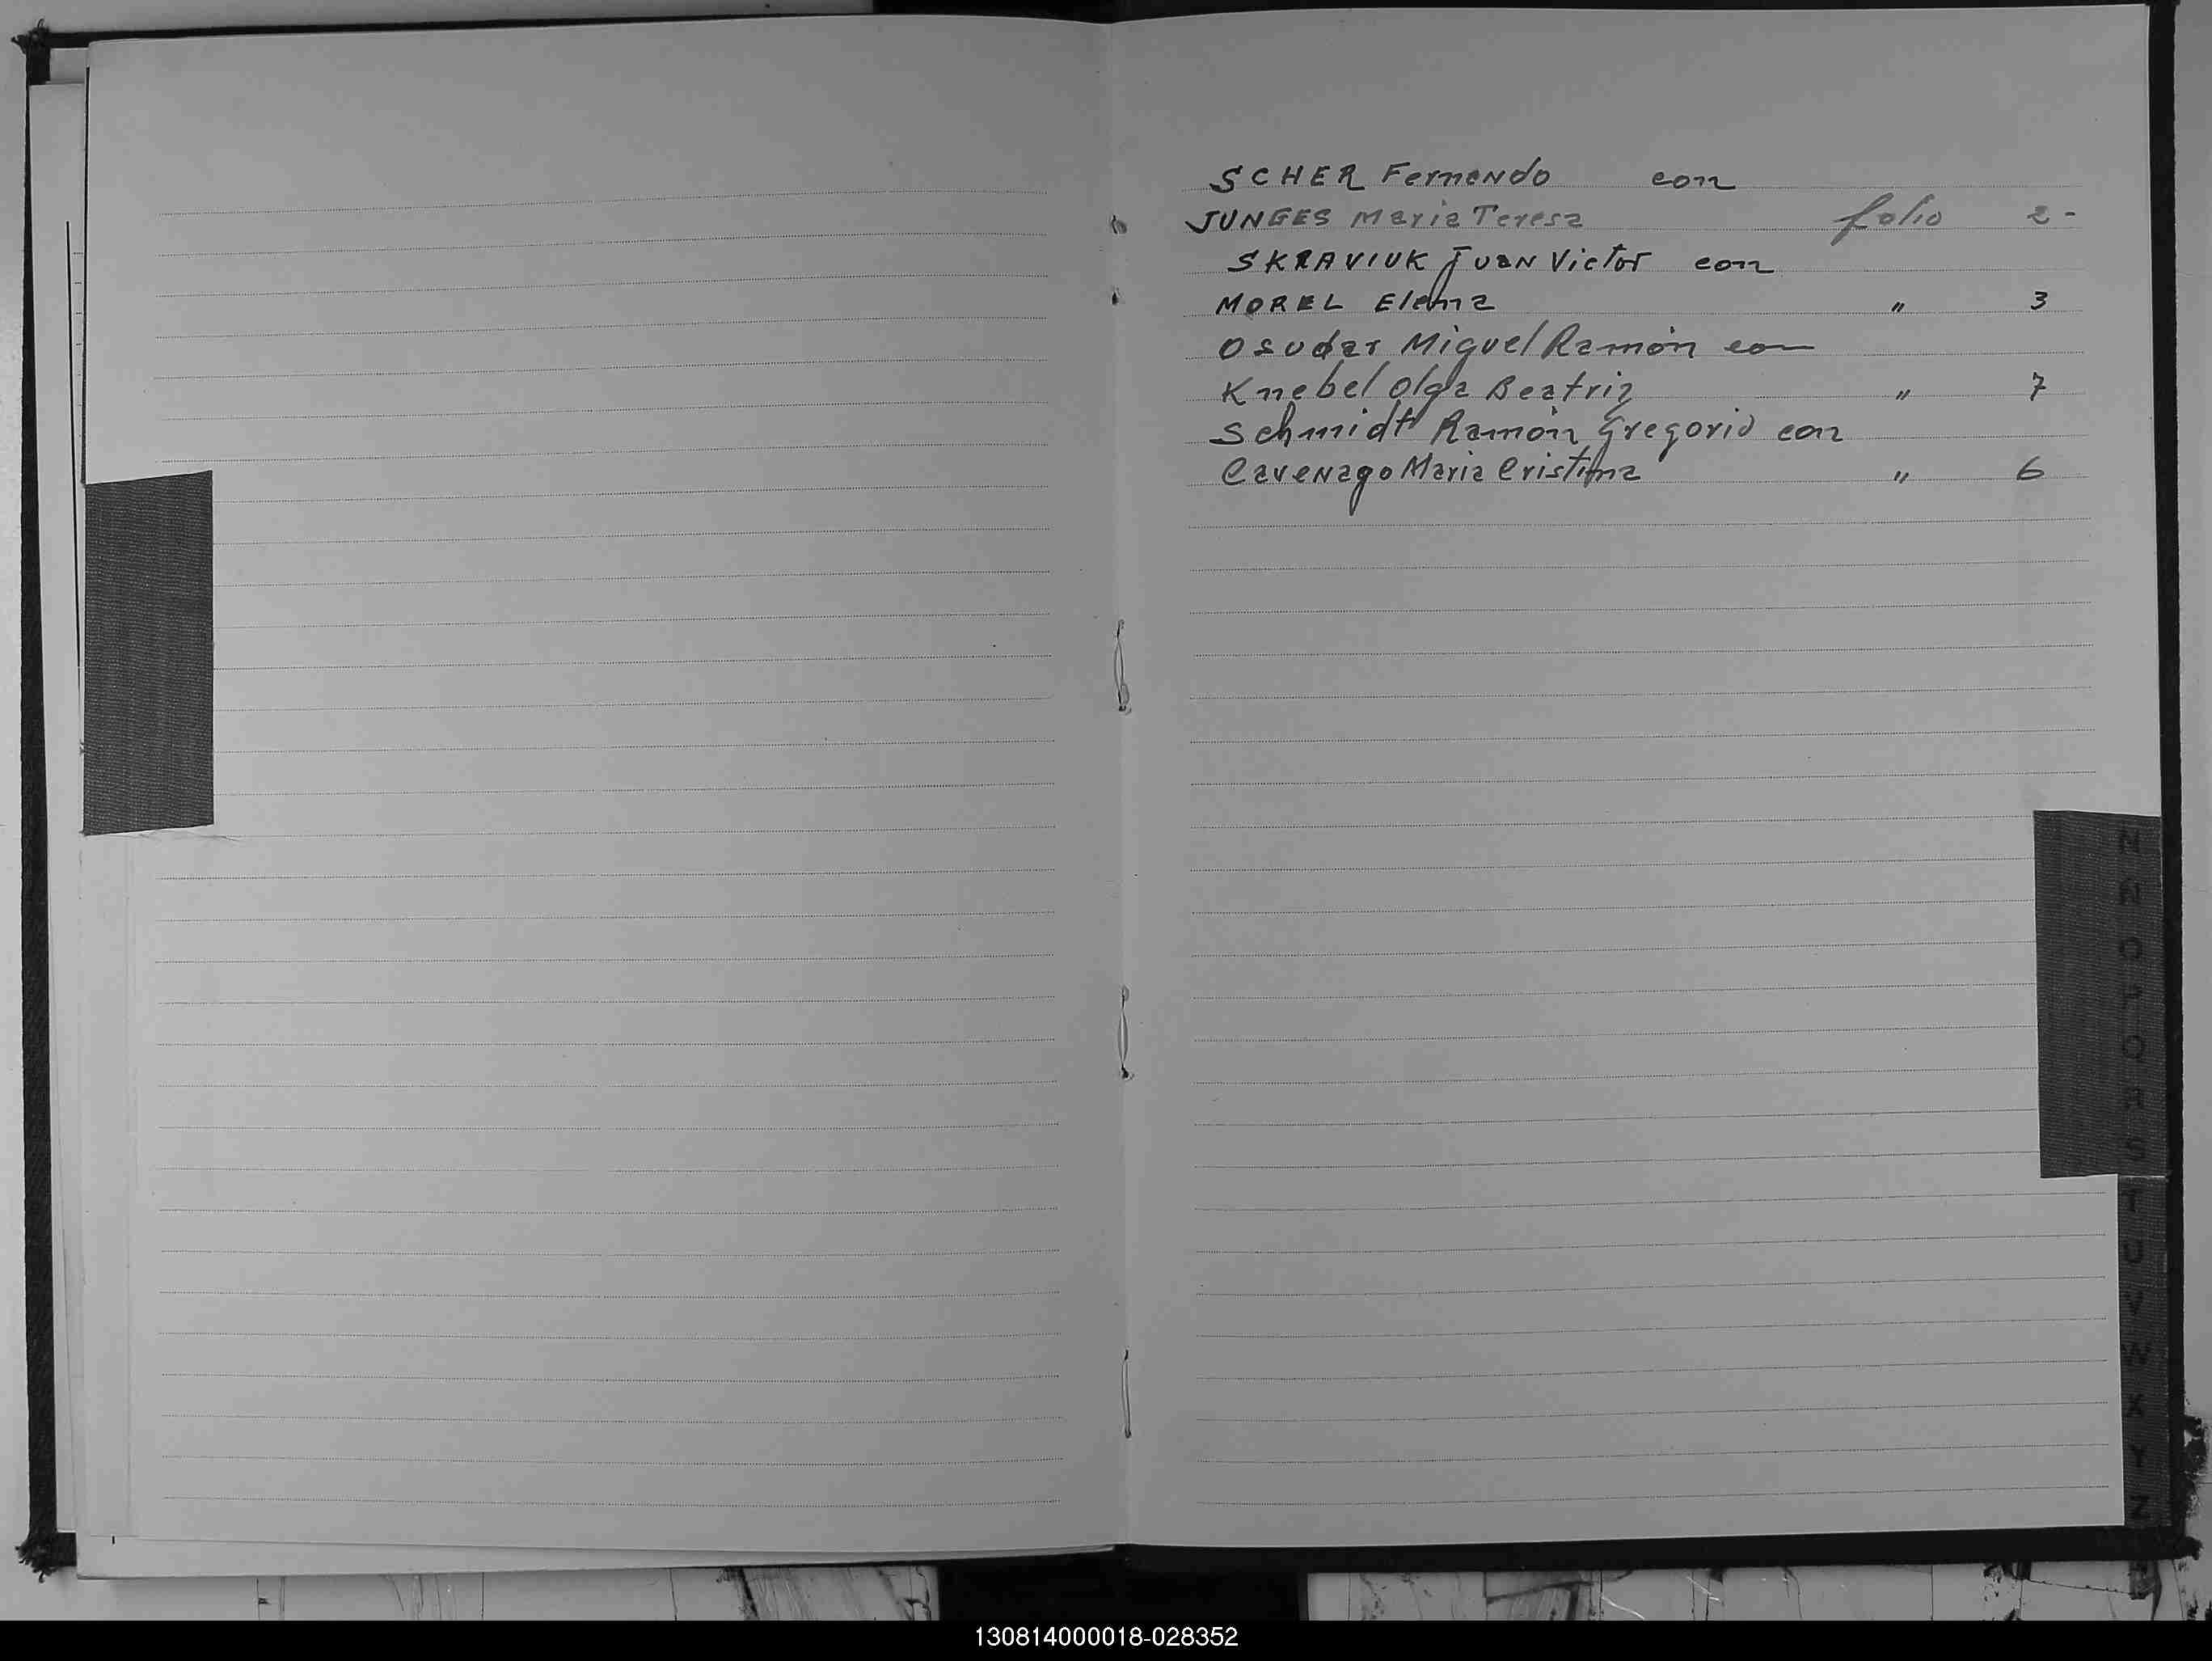 SCHER Fernando con
JUNGES Maria Teresa folio 2-
SKRAVIUK Juan Victor con
MOREL Elena " 3
Osudar Miguel Ramón con
Knebel Olga Beatriz " 7
Schmidt Ramón Gregorio con
Cavenago Maria Cristina " 6
N
Ñ
O
P
Q
R
S
T
U
V
W
X
Y
Z
130814000018-028352